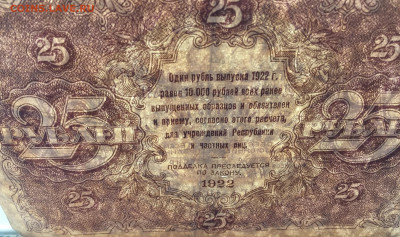 25 25
Один рубль выпуска 1922 г.
равен 10 000 рублей всех ранее
выпущенных образцов и обязателен
к приему, согласно этого расчета,
для учреждений Республики
и частных лиц.
25 РУБЛЕЙ 25 РУБЛЕЙ
ПОДДЕЛКА ПРЕСЛЕДУЕТСЯ
ПО ЗАКОНУ.
1922
25 25
25